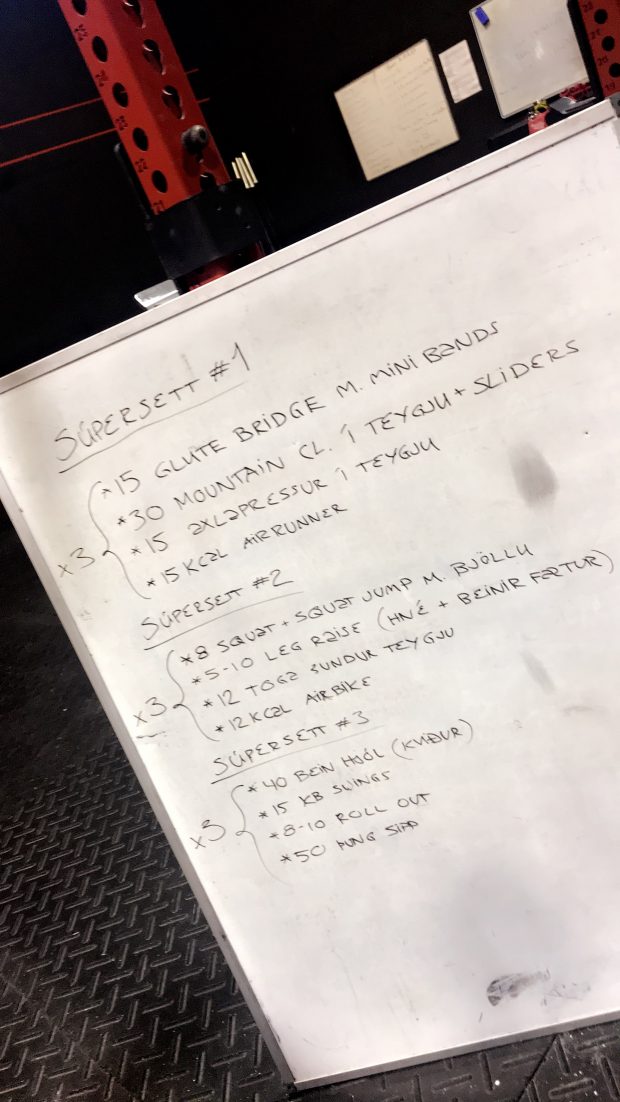 SÚPERSETT #1
x3
*15 GLUTE BRIDGE M. MINI BANDS
*30 MOUNTAIN CL. Í TEYGJU + SLIDERS
*15 AXLAPRESSUR Í TEYGJU
*15 KCAL AIRRUNNER
SÚPERSETT #2
x3
*8 SQUAT + SQUAT JUMP M. BJÖLLU
*5-10 LEG RAISE (HNÉ + BEINIR FÆTUR)
*12 TOGA SUNDUR TEYGJU
*12 KCAL AIRBIKE
SÚPERSETT #3
x3
*40 BEIN HJÓL (KVIÐUR)
*15 KB SWINGS
*8-10 ROLL OUT
*50 ÞUNG SIPP
25
24
23
22
21